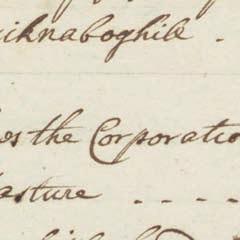 iknaboghill .
es the Corporatio
asture - - - -